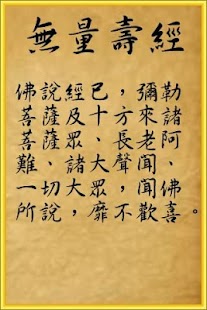 無量壽經
佛說經已，彌勒
菩薩及十方來諸
菩薩眾、長老阿
難、諸大聲聞、
一切大眾，聞佛
所說，靡不歡喜。